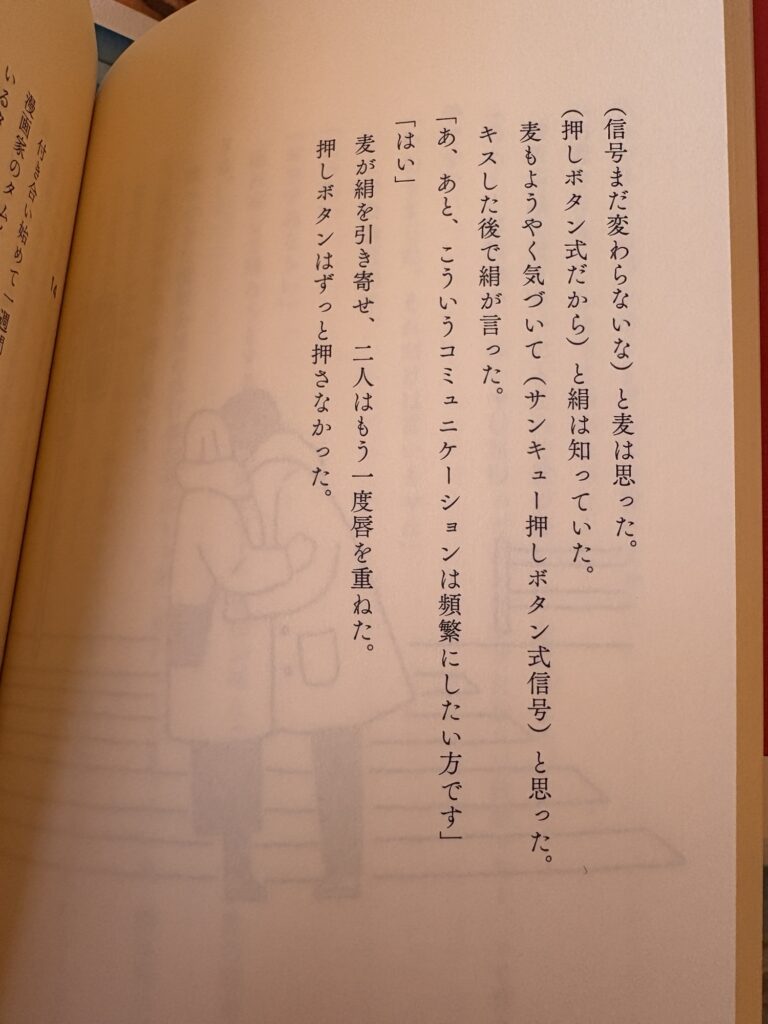 （信号まだ変わらないな）と麦は思った。
（押しボタン式だから）と絹は知っていた。
麦もようやく気づいて（サンキュー押しボタン式信号）と思った。
キスした後で絹が言った。
「あ、あと、こういうコミュニケーションは頻繁にしたい方です」
「はい」
麦が絹を引き寄せ、二人はもう一度唇を重ねた。
押しボタンはずっと押さなかった。
付き合い始めて一週間
漫画家の
いる